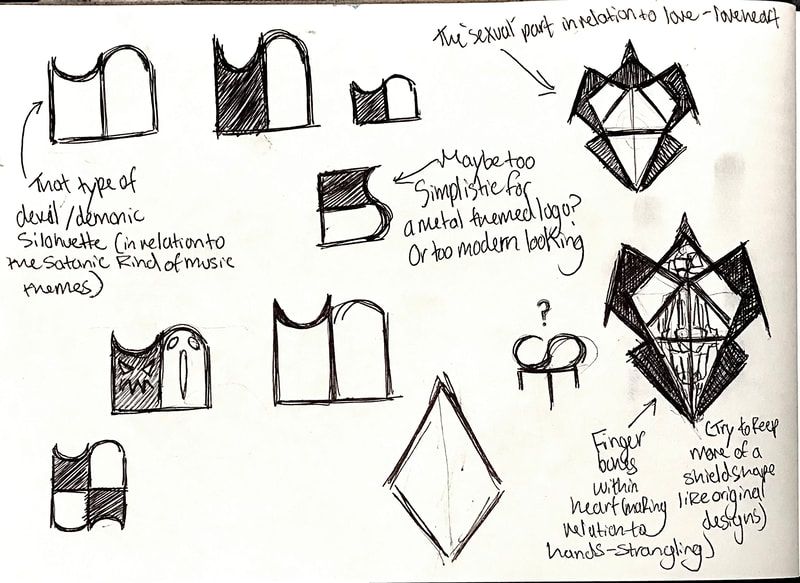 The "sexual" part in relation to love - loveheart
That type of
devil/demonic
Silohuette (in relation to
the Satanic Kind of music
themes)
Maybe too
Simplistic for
a metal themed logo?
Or too modern looking
?
Finger
bones
within
heart (making
relation to
hands - strangling)
(Try to Keep
more of a
shield shape
like original
designs)